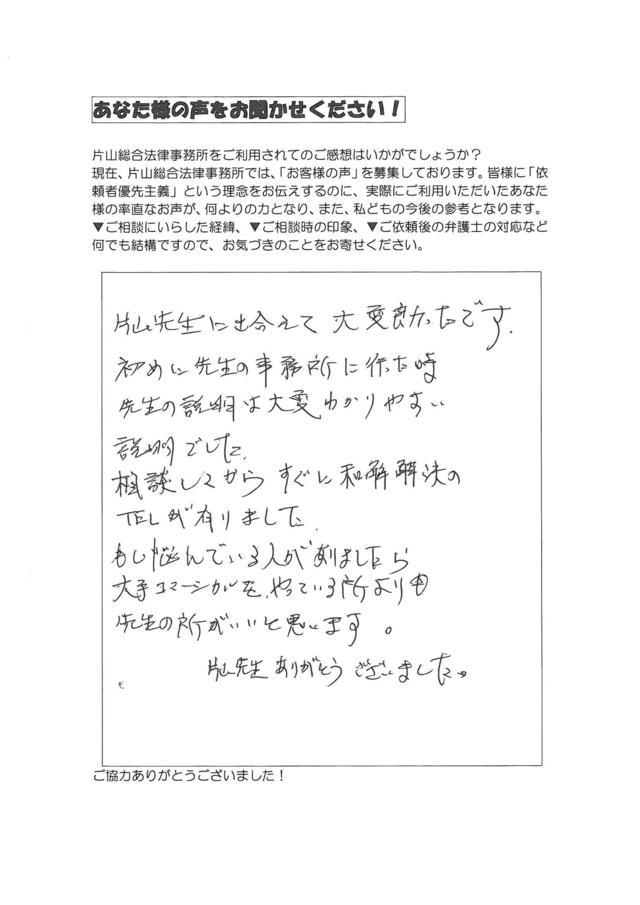 あなた様の声をお聞かせください！
片山総合法律事務所をご利用されてのご感想はいかがでしょうか？
現在、片山総合法律事務所では、「お客様の声」を募集しております。皆様に「依
頼者優先主義」という理念をお伝えするのに、実際にご利用いただいたあなた
様の率直なお声が、何よりの力となり、また、私どもの今後の参考となります。
▼ご相談にいらした経緯、▼ご相談時の印象、▼ご依頼後の弁護士の対応など
何でも結構ですので、お気づきのことをお寄せください。
片山先生に出会えて大変良かったです.
初めに先生の事務所に行った時
先生の説明は大変わかりやすい
説明でした.
相談してからすぐに和解解決の
TELが有りました.
もし悩んでいる人が有りましたら
大手コマーシャルを、やっている所よりも
先生の所がいいと思います。
片山先生ありがとうございました。
ご協力ありがとうございました！